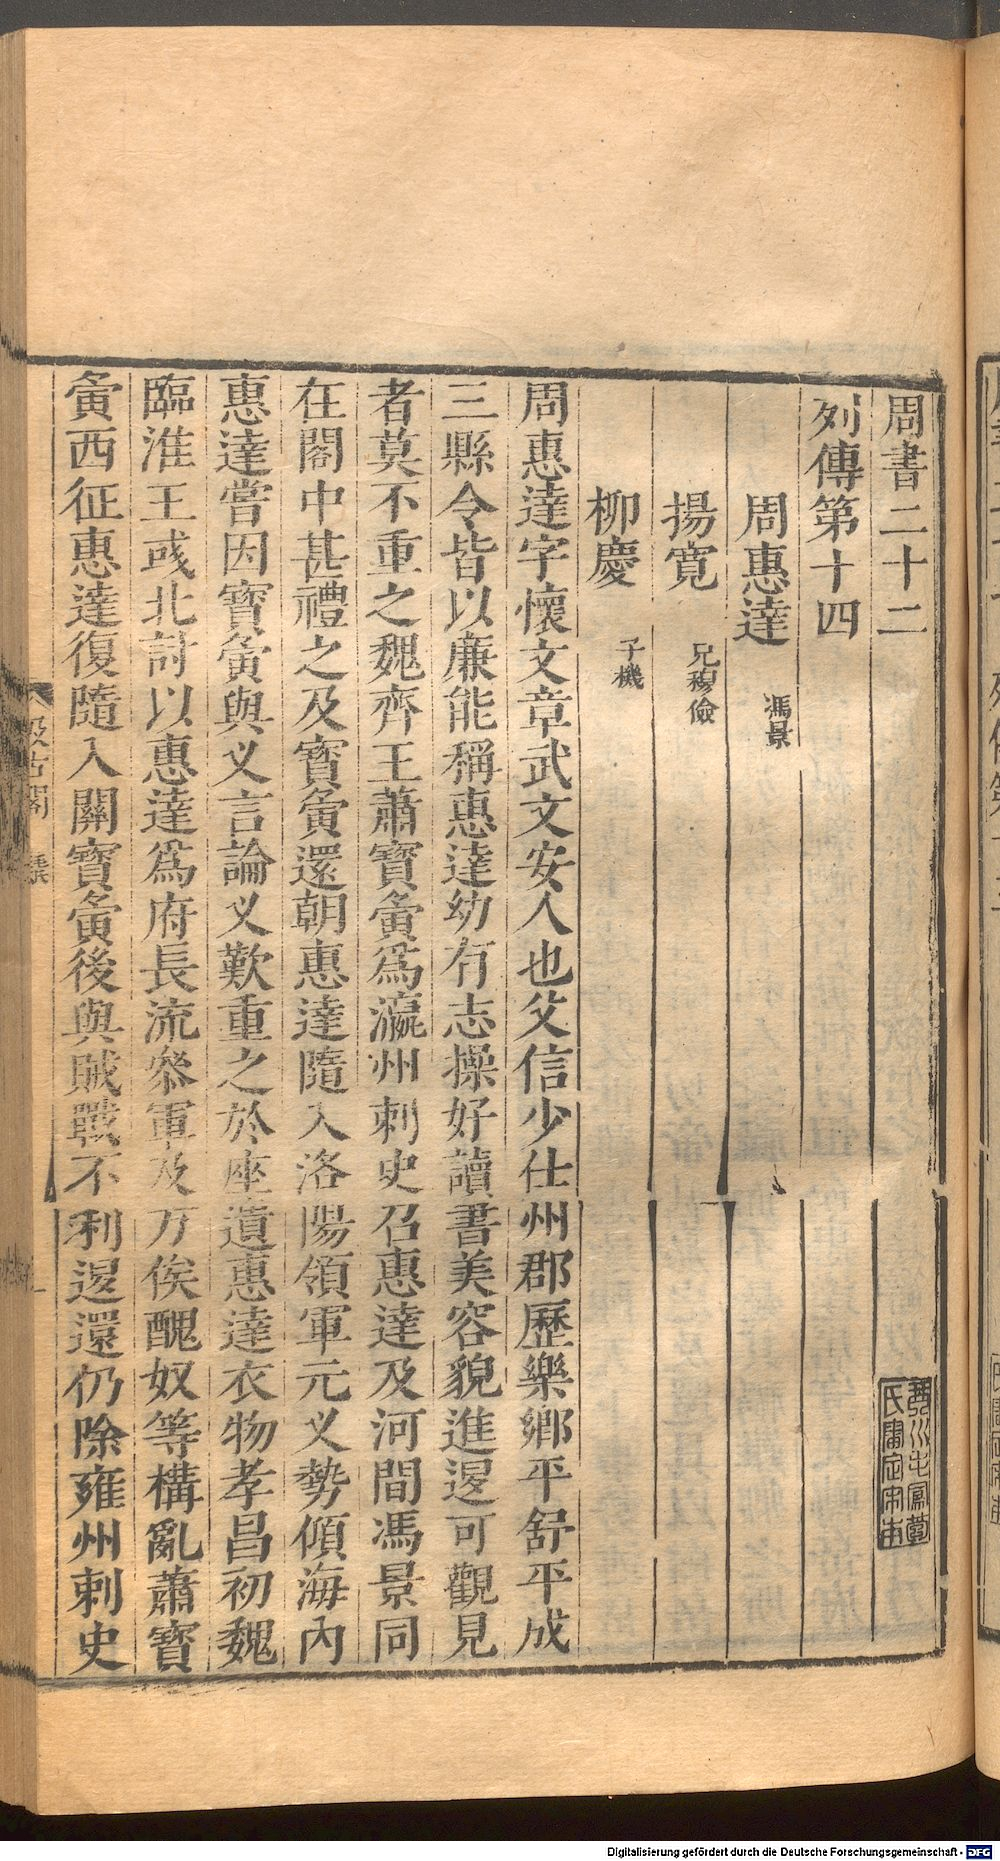 周書二十二
列傳第十四
周惠達 馮景
揚寬 兄穆儉
柳慶 子機
周惠達字懷文章武文安人也父信少仕州郡歷樂鄉平舒平成
三縣令皆以廉能稱惠達幼有志操好讀書美容貌進退可觀見
者莫不重之魏齊王蕭寶夤爲瀛州刺史召惠達及河間馮景同
在閣中甚禮之及寶夤還朝惠達隨入洛陽領軍元义勢傾海內
惠達嘗因寶夤與义言論义歎重之於座遺惠達衣物孝昌初魏
臨淮王彧北討以惠達爲府長流參軍及万俟醜奴等構亂蕭寶
夤西征惠達復隨入關寶夤後與賊戰不利退還仍除雍州刺史
汲古閣
Digitalisierung gefördert durch die Deutsche Forschungsgemeinschaft - DFG